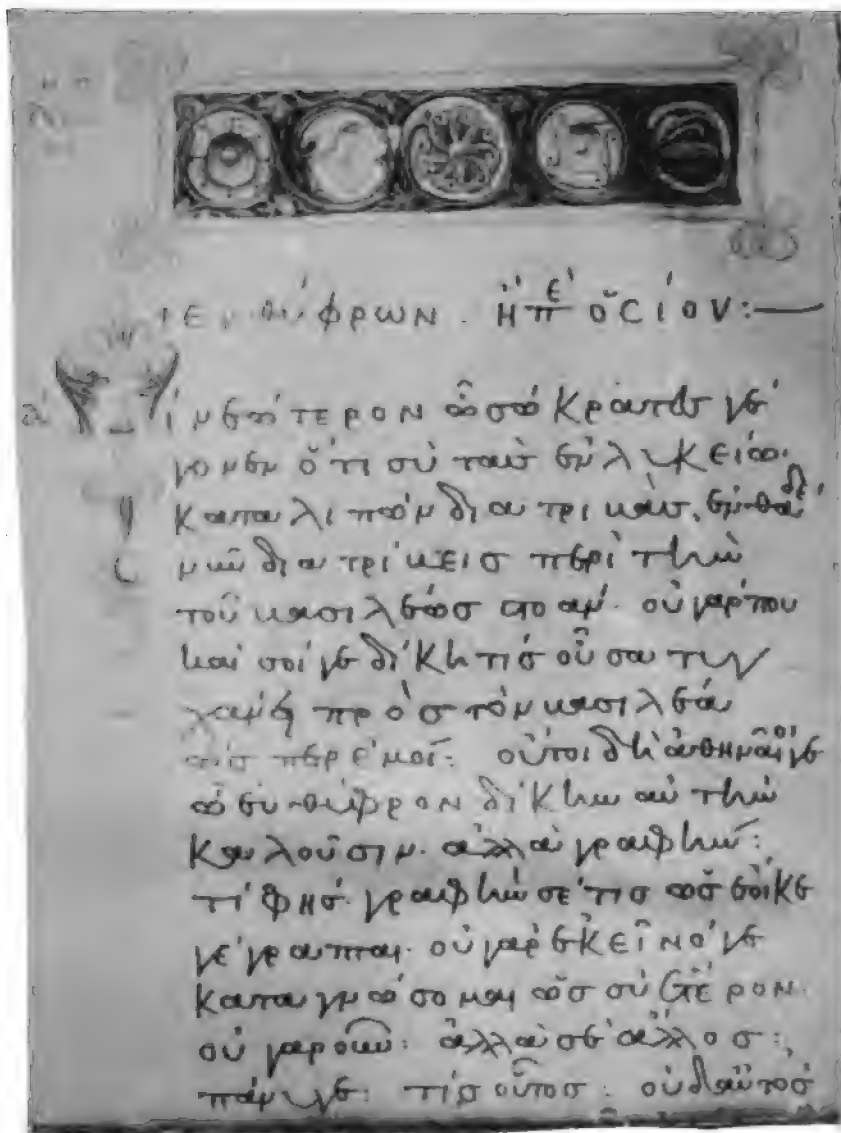 εὐθύφρων. ἢ περὶ ὁσίου:—
τί νεώτερον ὦ σώκρατες γέ
γονεν ὅτι σὺ τὰς ἐν λυκείω
καταλιπὼν διατριβὰς, ἐνθάδε
νῦν διατρίβεις περὶ τὴν
τοῦ βασιλέως στοάν. οὐ γάρ που
καὶ σοί γε δίκη τίς οὖσα τυγ
χάνει πρὸς τὸν βασιλέα
ὥσπερ ἐμοί: οὔτοι δὴ ἀθηναῖοί γε
ὦ εὐθύφρον δίκην αὐτὴν
καλοῦσιν. ἀλλὰ γραφήν:
τί φῄς. γραφὴν σέ τις ὡς ἔοικε
γέγραπται. οὐ γὰρ ἐκεῖνό γε
καταγνώσομαι ὡς σὺ ἕτερον.
οὐ γὰρ οὖν: ἀλλὰ σὲ ἄλλος:
πάνυ γε: τίς οὗτος: οὐδ' αὐτὸς